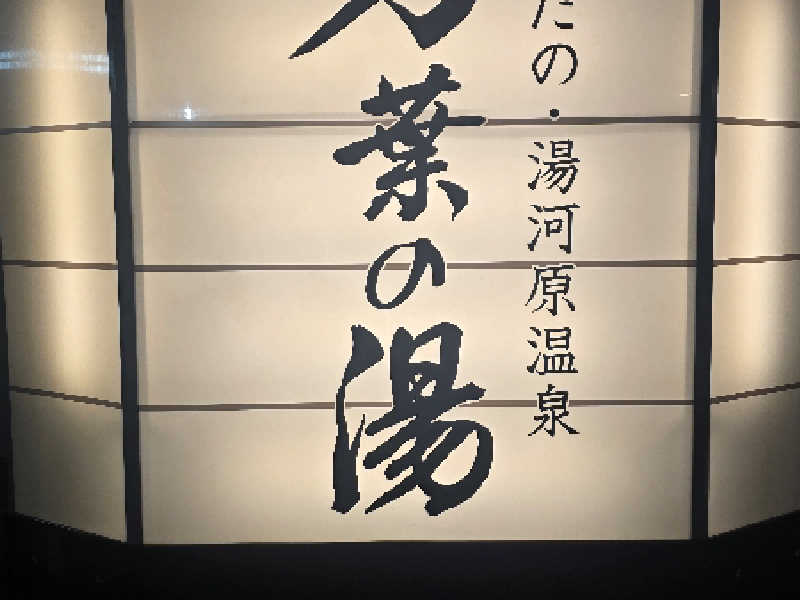 たの・湯河原温泉
万葉の湯